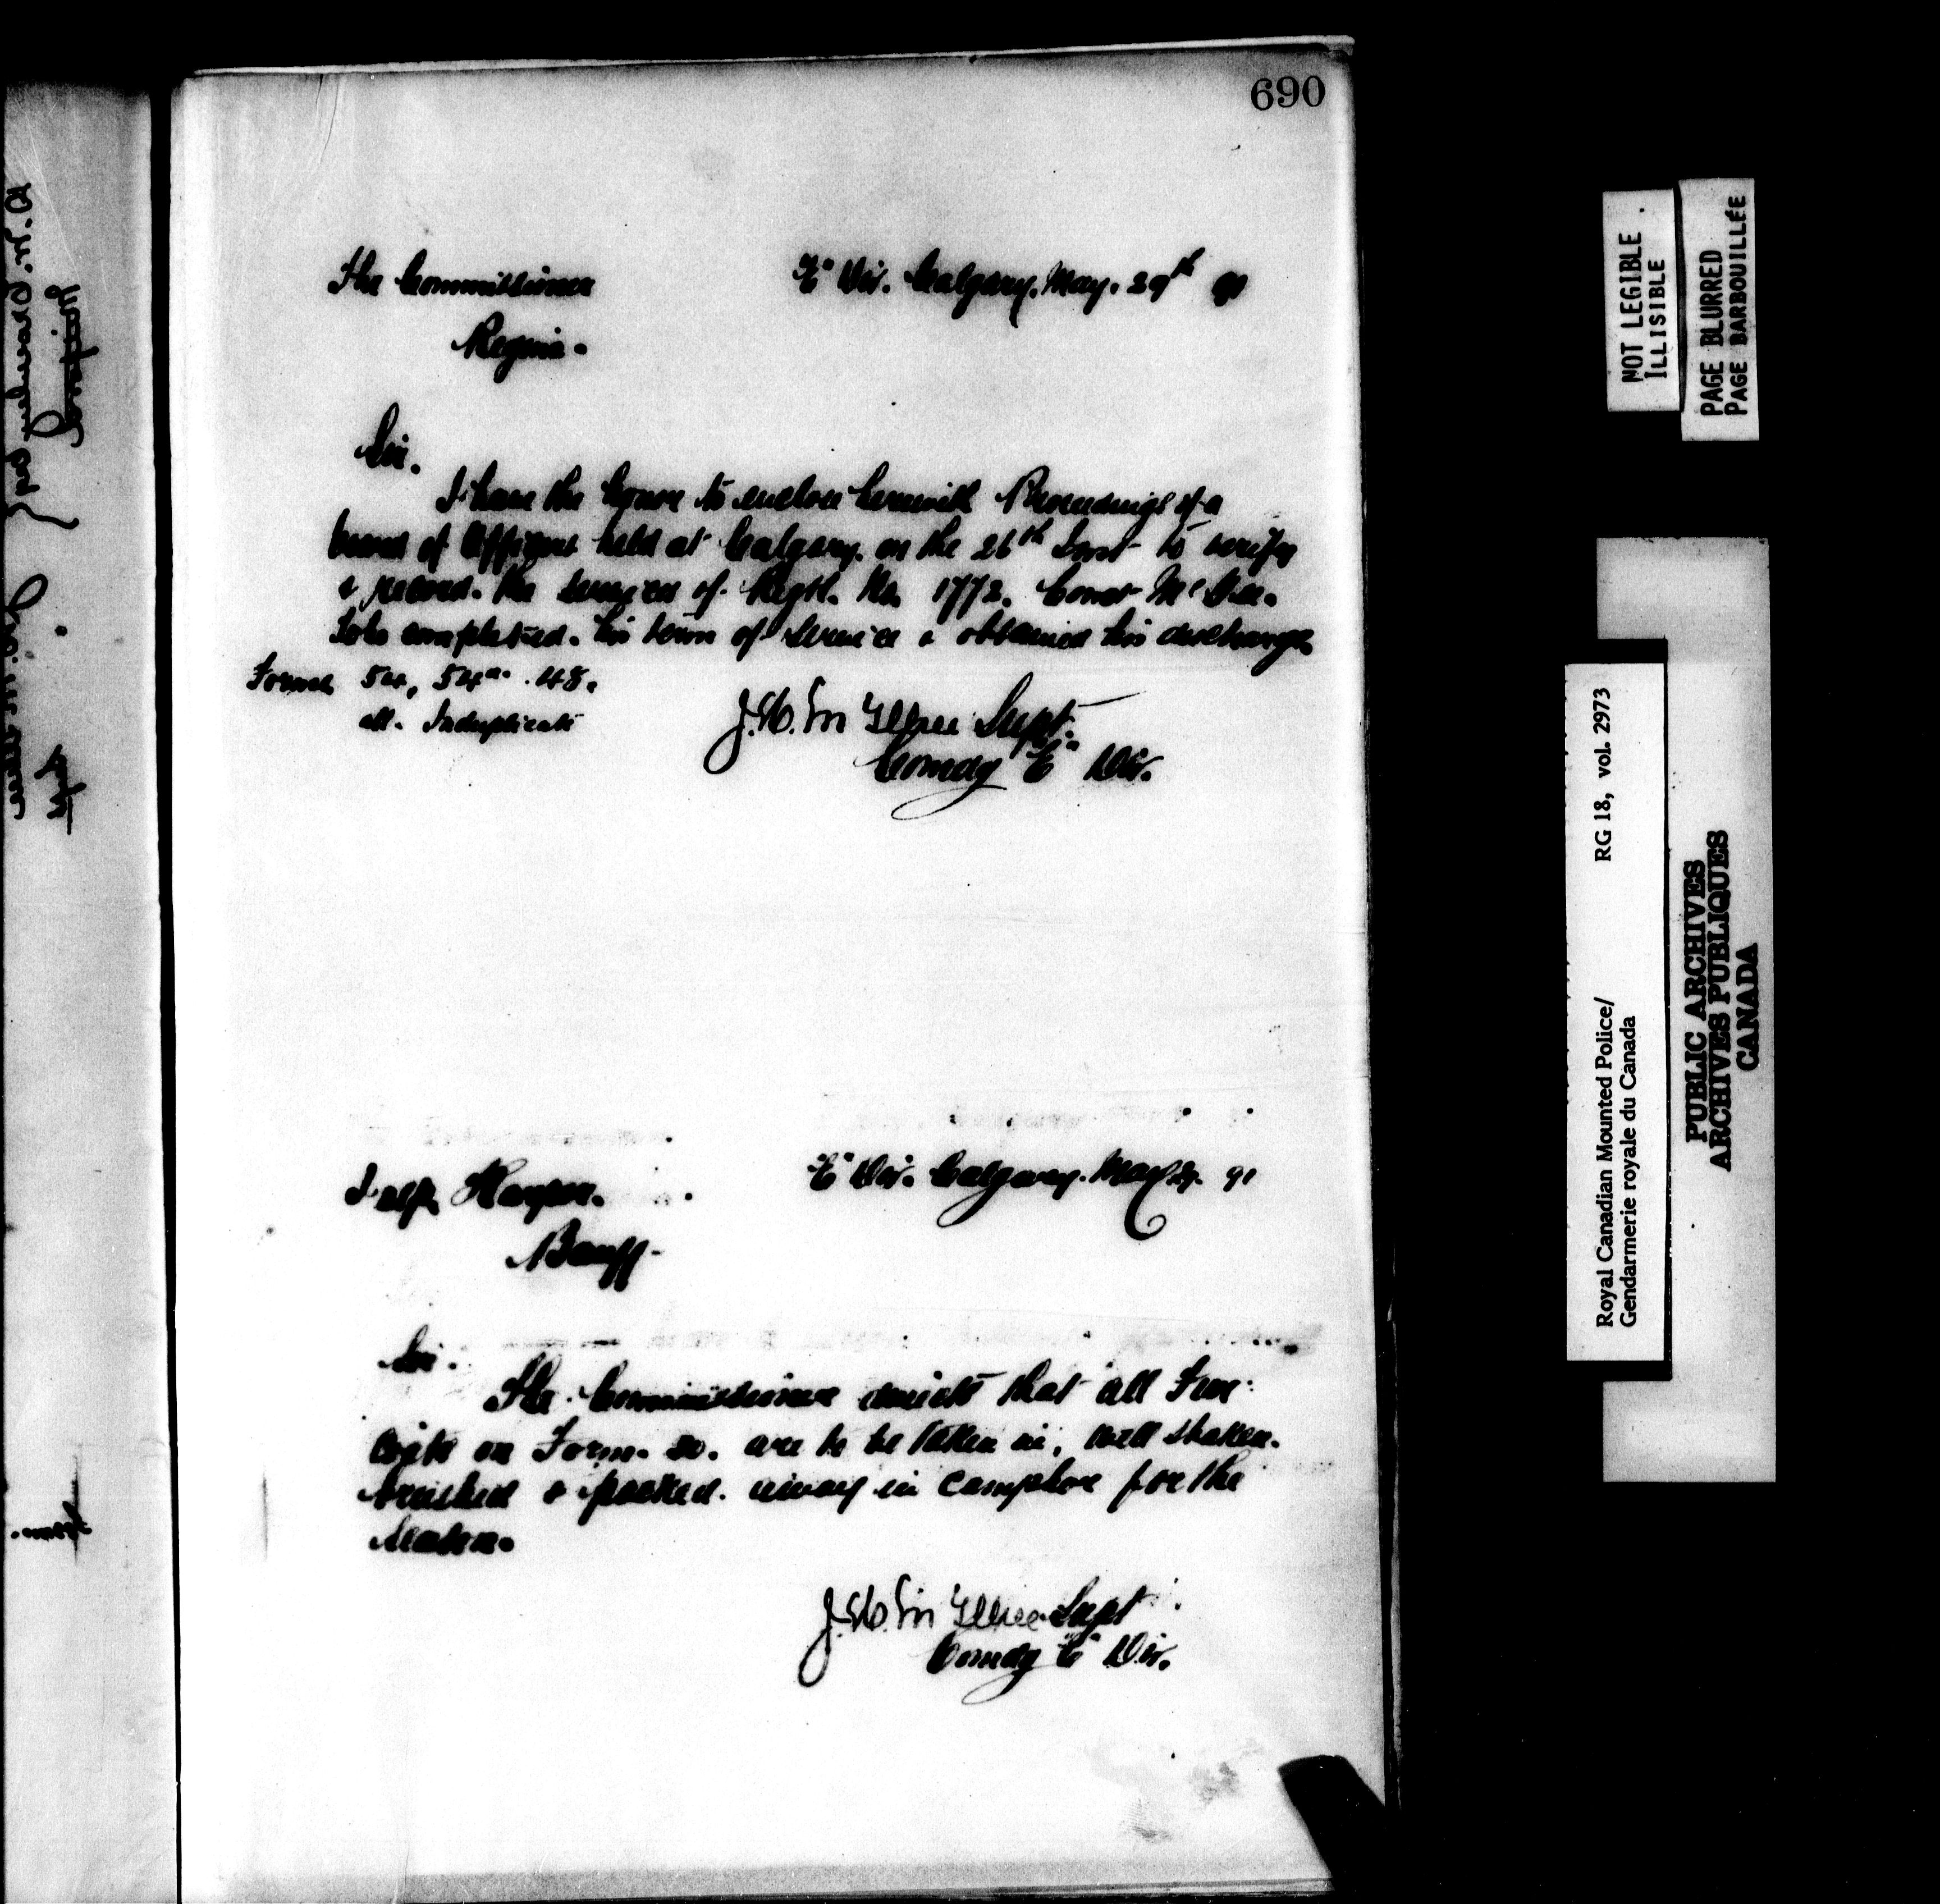 690
The Commissioner
"E" Div. Calgary. May. 29th 91
Regina.
Sir.
I have the honor to enclose herewith Proceedings of a
board of Officers held at Calgary. on the 26th Inst to verify
& record. the services of Regtl. No. 1772. Const
who completed. his term of Service & obtained his discharge
Forms 54, 54a. 48.
all. Induplicate
J.H. McIllree Supt.
Comdg "E" Div.
"E" Div. Calgary. May 29. 91
Insp. Harper.
Banff-
Sir.
The Commissioner directs that all Fur
on Form. 20. are to be taken in, well shaken.
brushed & packed. away in camphor for the
Season.
J.H. McIllree Supt
Comdg "E" Div.
NOT LEGIBLE
ILLISIBLE
PAGE BLURRED
PAGE BARBOUILLÉE
Royal Canadian Mounted Police/ RG 18, vol. 2973
Gendarmerie royale du Canada
PUBLIC ARCHIVES
ARCHIVES PUBLIQUES
CANADA